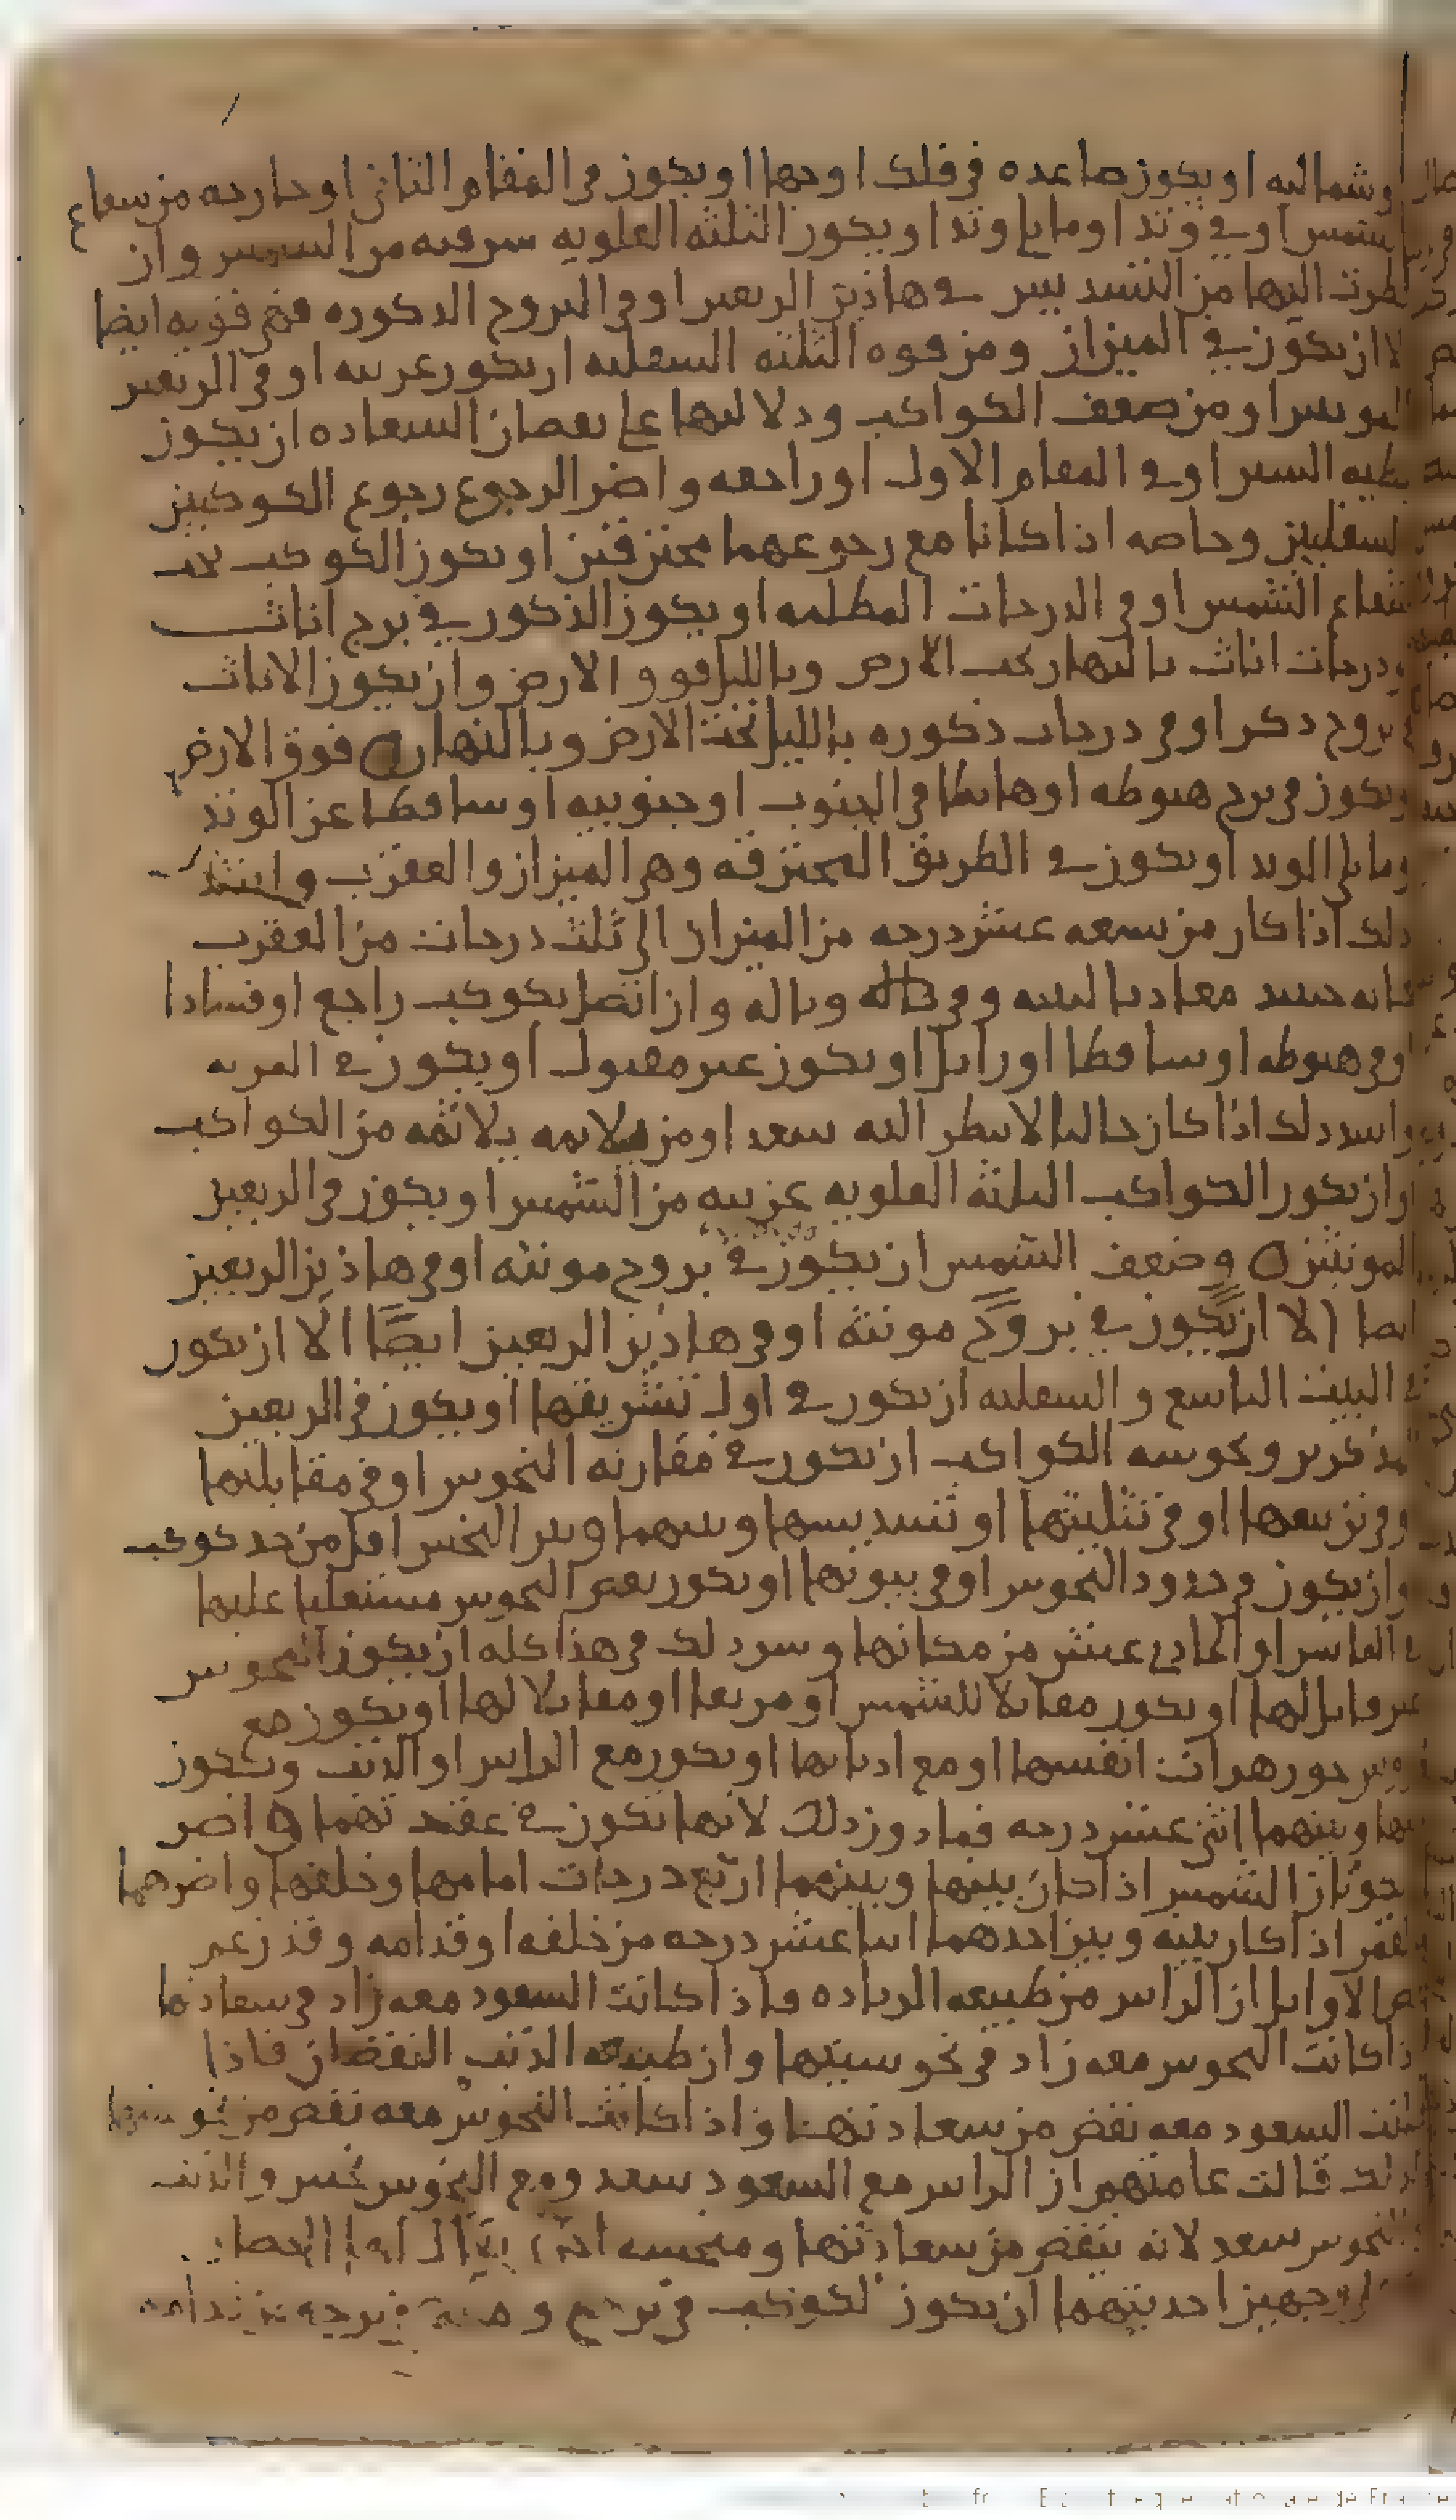 وشماليه او يكون صاعده في فلك اوجها او يكون في المقام الثاني او خارجه من شعاع
الشمس او في وتد او مايلي وتد او يكون الثلثه العلويه شرقيه من الشمس وان
نظرت اليها من التسديس في هاذين الربعين او في البروج الذكوره فهي قويه ايضا
الا ان يكون في الميزان ومن قوه الثلثه السفليه ان يكون غربيه او في الربعين
المونثين او من ضعف الكواكب ودلالتها على نقصان السعاده ان يكون
بطيه السير او في المقام الاول او راجعه واضر الرجوع رجوع الكوكبين
السفليين وخاصه اذا كانا مع رجوعهما محترقين او يكون الكوكب تحت
شعاع الشمس او في الدرجات المظلمه او يكون الذكور في برج اناث
ودرجات اناث بالنهار تحت الارض وبالليل فوق الارض وان يكون الاناث
في بروج ذكر او في درجات ذكوره بالليل تحت الارض وبالنهار فوق الارض
ويكون في برج هبوطه او هابطا في الجنوب او جنوبيه او ساقطا عن الوتد
ومايلي الوتد او يكون في الطريق المحترقه وهي الميزان والعقرب واشد
ذلك اذا كان من تسعه عشر درجه من الميزان الى ثلث درجات من العقرب
وباله وان اتصل بكوكب راجع او فسادا
او في هبوطه او ساقطا او زايل او يكون غير مقبول او يكون في الغربه
واشد ذلك اذا كان خاليا لا ينظر اليه سعد او من يلايمه من الكواكب
وان يكون الكواكب الثلثه العلويه غربيه من الشمس او يكون في الربعين
المونثين وضعف الشمس ان يكون في بروج مونثه او في هاذين الربعين
ايضا الا ان يكون في بروج مونثه او في هاذين الربعين ايضا الا ان يكون
في البيت التاسع والسفليه ان يكون في اول تشريقها او يكون في الربعين
المذكرين ونحوسه الكواكب ان يكون في مقارنه النحوس او في مقابلتها
وفي تربيعها او في تثليثها او تسديسها وبينهما وبين النحس اقل من حد كوكب
وان يكون في حدود النحوس او في بيوتها او يكون بعض النحوس مستعليا عليها
في العاشر او الحادي عشر من مكانها وشر ذلك في هذا كله ان يكون النحوس
غير قابل لها او يكون مقابلا للشمس او مربعا او مقابلا لها او يكون مع
جوزهرات انفسها او مع اربابها او يكون مع الراس او الذنب ويكون
بينها وبينهما اثني عشر درجه فما دون ذلك لانها تكون في عقد تهما واضر
يكونان الشمس اذا كان بينها وبينهما اربع درجات امامها وخلفها واضرهما
بالقمر اذا كان بينه وبين احدهما اثنا عشر درجه من خلفه او قدامه وقد زعم
الاوايل ان الراس من طبيعه الزياده فاذا كانت السعود معه زاد في سعادتها
واذا كانت النحوس معه زاد في نحوسيتها وان طبيعه الذنب النقصان فاذا
كانت السعود معه نقص من سعادتها واذا كانت النحوس معه نقص من نحوسيتها
ولذلك قالت عامتهم ان الراس مع السعود سعد ومع النحوس نحس والذنب
مع النحوس سعد لانه ينقص من سعادتها
لوجهين احديهما ان يكون الكوكب في